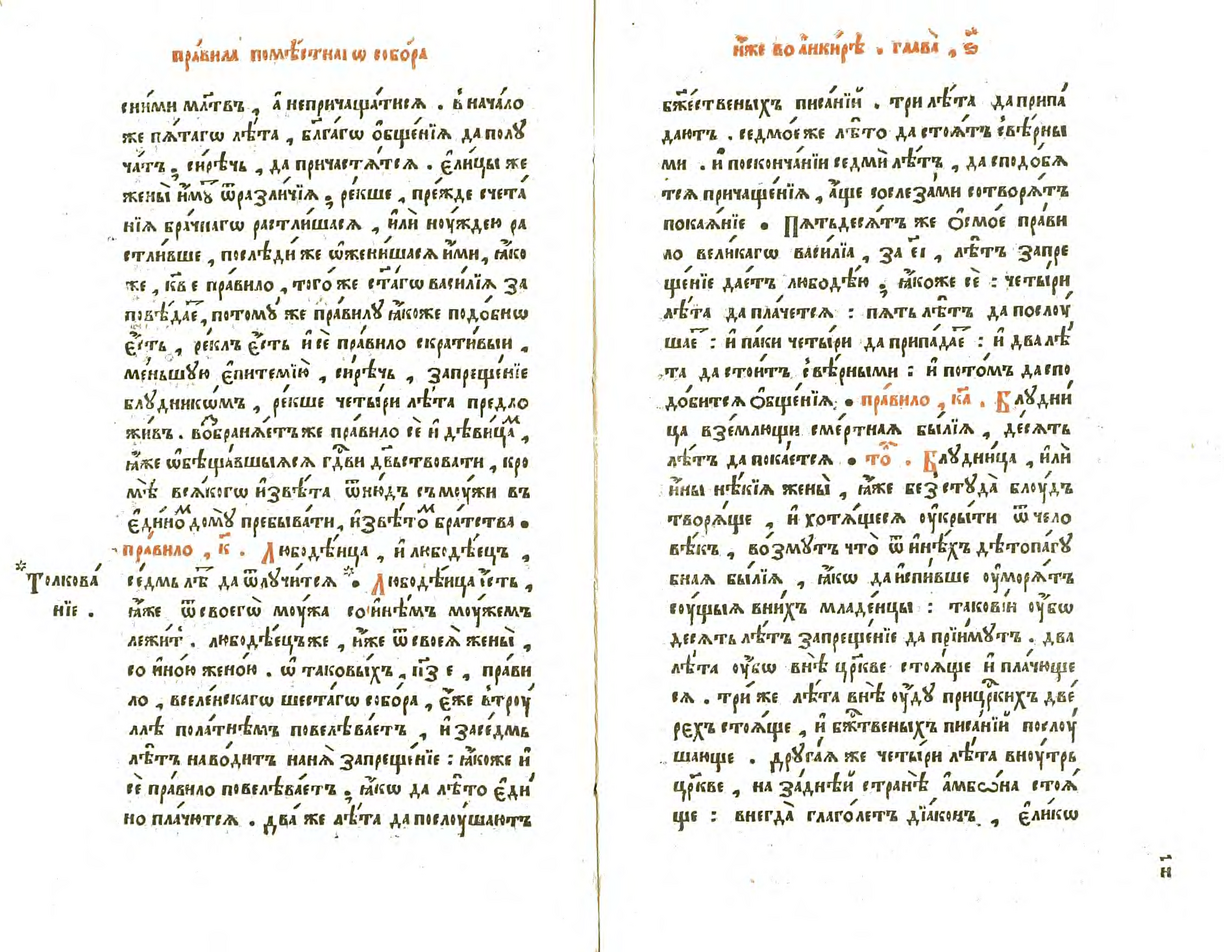 пра́вила помѣ́стнаꙵѡ собо́ра
сни́ми мл҃твъ , а҆ непричаща́тисѧ . в нача́ло
же пѧ́тагѡ лѣ́та , бл҃га́гѡ ѻ҆бще́нїѧ да полꙋ
ча́тъ ; си́рѣчь , да причастѧ́тсѧ . є҆ли́цы же
жены̀ и҆мꙋ̀ ѿразли́чїѧ ; ре́кше , пре́жде счета́
нїѧ бра́чнагѡ растли́шасѧ , и҆лѝ ноу́ждею ра
стли́вше , послѣди́ же ѡ҆жени́шасѧ и҆́ми , ꙗ҆́ко
же , к҃в е пра́вило , того́ же ст҃а́гѡ васи́лїѧ за
повѣ́даеⷮ , потомꙋ́ же пра́вилꙋ ꙗ҆́коже подо́бнѡ
є҆́сть , ре́клъ є҆́сть и҆ сѐ пра́вило скрати́выи ,
ме́ньшꙋю є҆питемі́ю , си́рѣчь , запреще́нїе
блꙋдникѡ́мъ , ре́кше четы́ри лѣ́та предло
жи́въ . возбранѧ́етъже пра́вило сѐ и҆ дѣви́цаⷨ ,
ꙗ҆́же ѡ҆бѣща́вшыѧсѧ гд҇ви дв҃ьствовати , кро
мѣ̀ всѧ́когѡ и҆звѣ́та ѿню́дъ съмоу́жи въ
є҆ди́ноⷨ домꙋ̀ пребыва́ти , и҆звѣ́тоⷨ бра́тства .
пра́вило , к҃ . Любодѣ́ица , и҆ любодѣ́ецъ ,
се́дмь лѣⷮ да ѿлꙋчи́тсѧ * . Любодѣ́ица є҆́сть ,
*Толкова́
нїе .
ꙗ҆́же ѿ своегѡ̀ моу́жа со и҆нѣ́мъ моу́жемъ
лежи́т . любодѣ́ецъже , и҆́же ѿ своеѧ̀ жены̀ ,
со и҆но́ю жено́ю . ѡ҆ таковы́хъ , п҃з е , пра́ви
ло , вселе́нскагѡ шеста́гѡ собо́ра , є҆́же в троу́
ллѣ пола́тнѣмъ повелѣва́етъ , и҆ засе́дмь
лѣ́тъ наво́дитъ нанѧ̀ запреще́нїе : ꙗ҆́коже и҆
сѐ пра́вило повелѣва́етъ ; ꙗ҆́кѡ да лѣ́то є҆ди́
но пла́чютсѧ . два́ же лѣ́та да послоу́шаютъ
и҆́же во а҆нки́рѣ . глава̀ , ѕ҃
бж҃е́ственыхъ писа́нїй . три лѣ́та да припа́
даютъ . седмо́еже лѣ́то да стоѧ́тъ с вѣ́рны
ми . и҆ посконча́нїи седмѝ лѣ́тъ , да сподо́бѧ
тсѧ причаще́нїѧ , а҆́ще сослеза́ми сотворѧ́тъ
покаѧ́нїе . Пѧтьдесѧ́тъ же ѻ҆смо́е пра́ви
ло вели́кагѡ васи́лїа , за є҃і , лѣ́тъ запре
ще́нїе дае́тъ любодѣ́ю ; ꙗ҆́коже сѐ : четы́ри
лѣ́та да пла́четсѧ : пѧ́ть лѣ́тъ да послоу́
шаеⷮ : и҆ па́ки четы́ри да припа́даеⷮ : и҆ два̀ лѣ́
та да стои́тъ с вѣ́рными : и҆ пото́мъ да спо
до́битсѧ ѻ҆бще́нїѧ . пра́вило , к҃а . Блꙋдни́
ца взе́млющи сме́ртнаѧ бы́лїѧ , де́сѧть
лѣ́тъ да пока́етсѧ . то́ⷧ . Блꙋдни́ца , и҆лѝ
и҆́ны нѣ́кїѧ жены̀ , ꙗ҆́же без стꙋда̀ блоу́дъ
творѧ́ще , и҆ хотѧ́щесѧ оу҆кры́ти ѿ чело
вѣ́къ , во́змꙋтъ что̀ ѿ и҆нѣ́хъ дѣтопа́гꙋ
бнаѧ бы́лїѧ , ꙗ҆́кѡ да и҆спи́вше оу҆морѧ́тъ
соу́щыѧ вни́хъ младе́нцы : такові́и оу҆́бѡ
де́сѧть лѣ́тъ запреще́нїе да прїи́мꙋтъ . два
лѣ́та оу҆́бѡ внѣ̀ цр҃кве стоѧ́ще и҆ пла́чюще
сѧ . три́ же лѣ́та внѣ̀ оу҆́дꙋ прицр҃кихъ две́
рехъ стоѧ́ще , и҆ бж҃твеныхъ писа́нїй послоу́
шающе . дрꙋга́ѧ же четы́ри лѣ́та вноу́трь
цр҃кве , на за́днѣй странѣ̀ а҆мбѡ́на стоѧ́
ще : внегда̀ глаго́летъ дїа́конъ , є҆ли́кѡ
н҃і